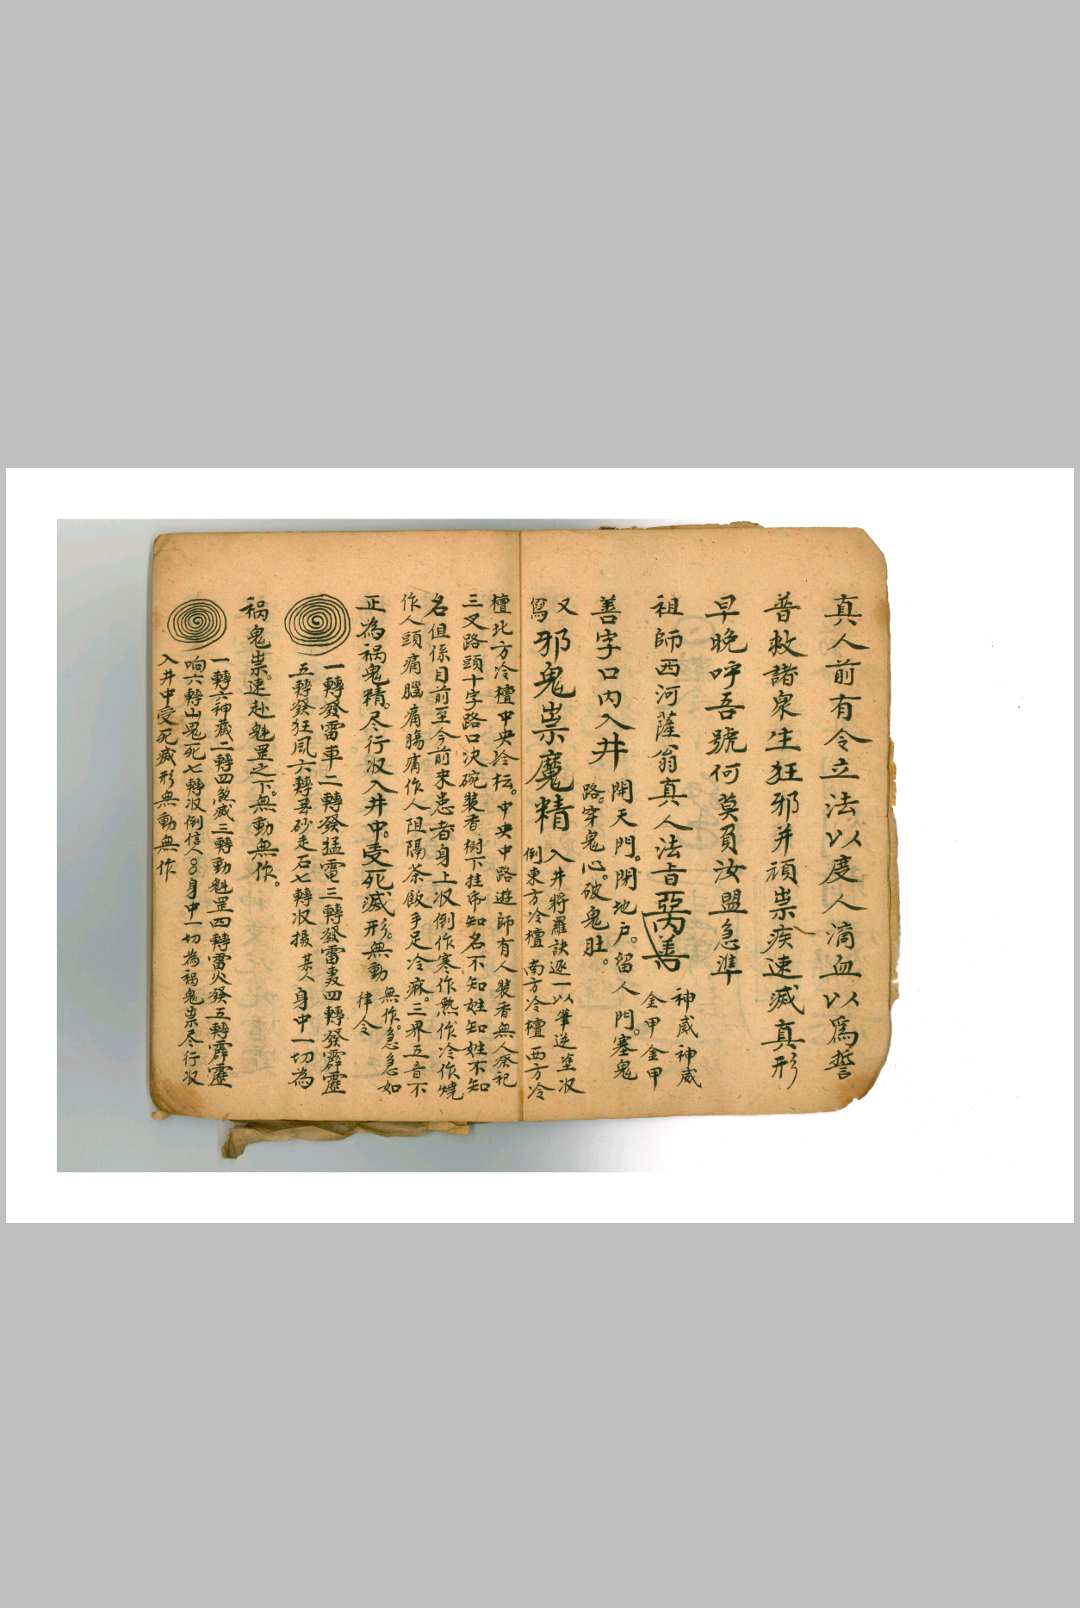 真人前有令立法以度人滴血以爲誓
普救諸衆生狂邪并頑祟疾速滅真形
早晚呼吾號何莫負汝盟急準
祖師西河薩翁真人法旨
神威神威
金甲金甲
善字口内入井
開天門。閉地户。留人門。塞鬼
路。穿鬼心。破鬼肚。
又
寫
邪鬼祟魔精
入井將羅訣逐一以筆逆塗収
倒東方冷檀 南方冷檀 西方冷
檀北方冷檀中央冷坛。中央中路遊師有人裝香無人祭祀
三叉路頭十字路口决碗裝香樹下挂帋知名不知姓知姓不知
名但係目前至今前來患者身上収倒作寒作熱作冷作燒
作人頭痛腦痛腸痛作人阻隔茶飯手足冷麻。三界五音不
正為禍鬼精。尽行収入井中。受死滅形。無動
無作。急急如
律令
一轉發雷車二轉發猛電三轉發雷裏四轉發霹靂
五轉發狂風六轉丟砂走石七轉収攝某人身中一切為
禍鬼祟。速赴魁罡之下。無動無作。
一轉六神藏二轉四煞滅三轉動魁罡四轉雷火發五轉霹靂
响六轉山鬼死七轉収倒信人身中一切為禍鬼祟尽行収
入井中受死滅形無動無作